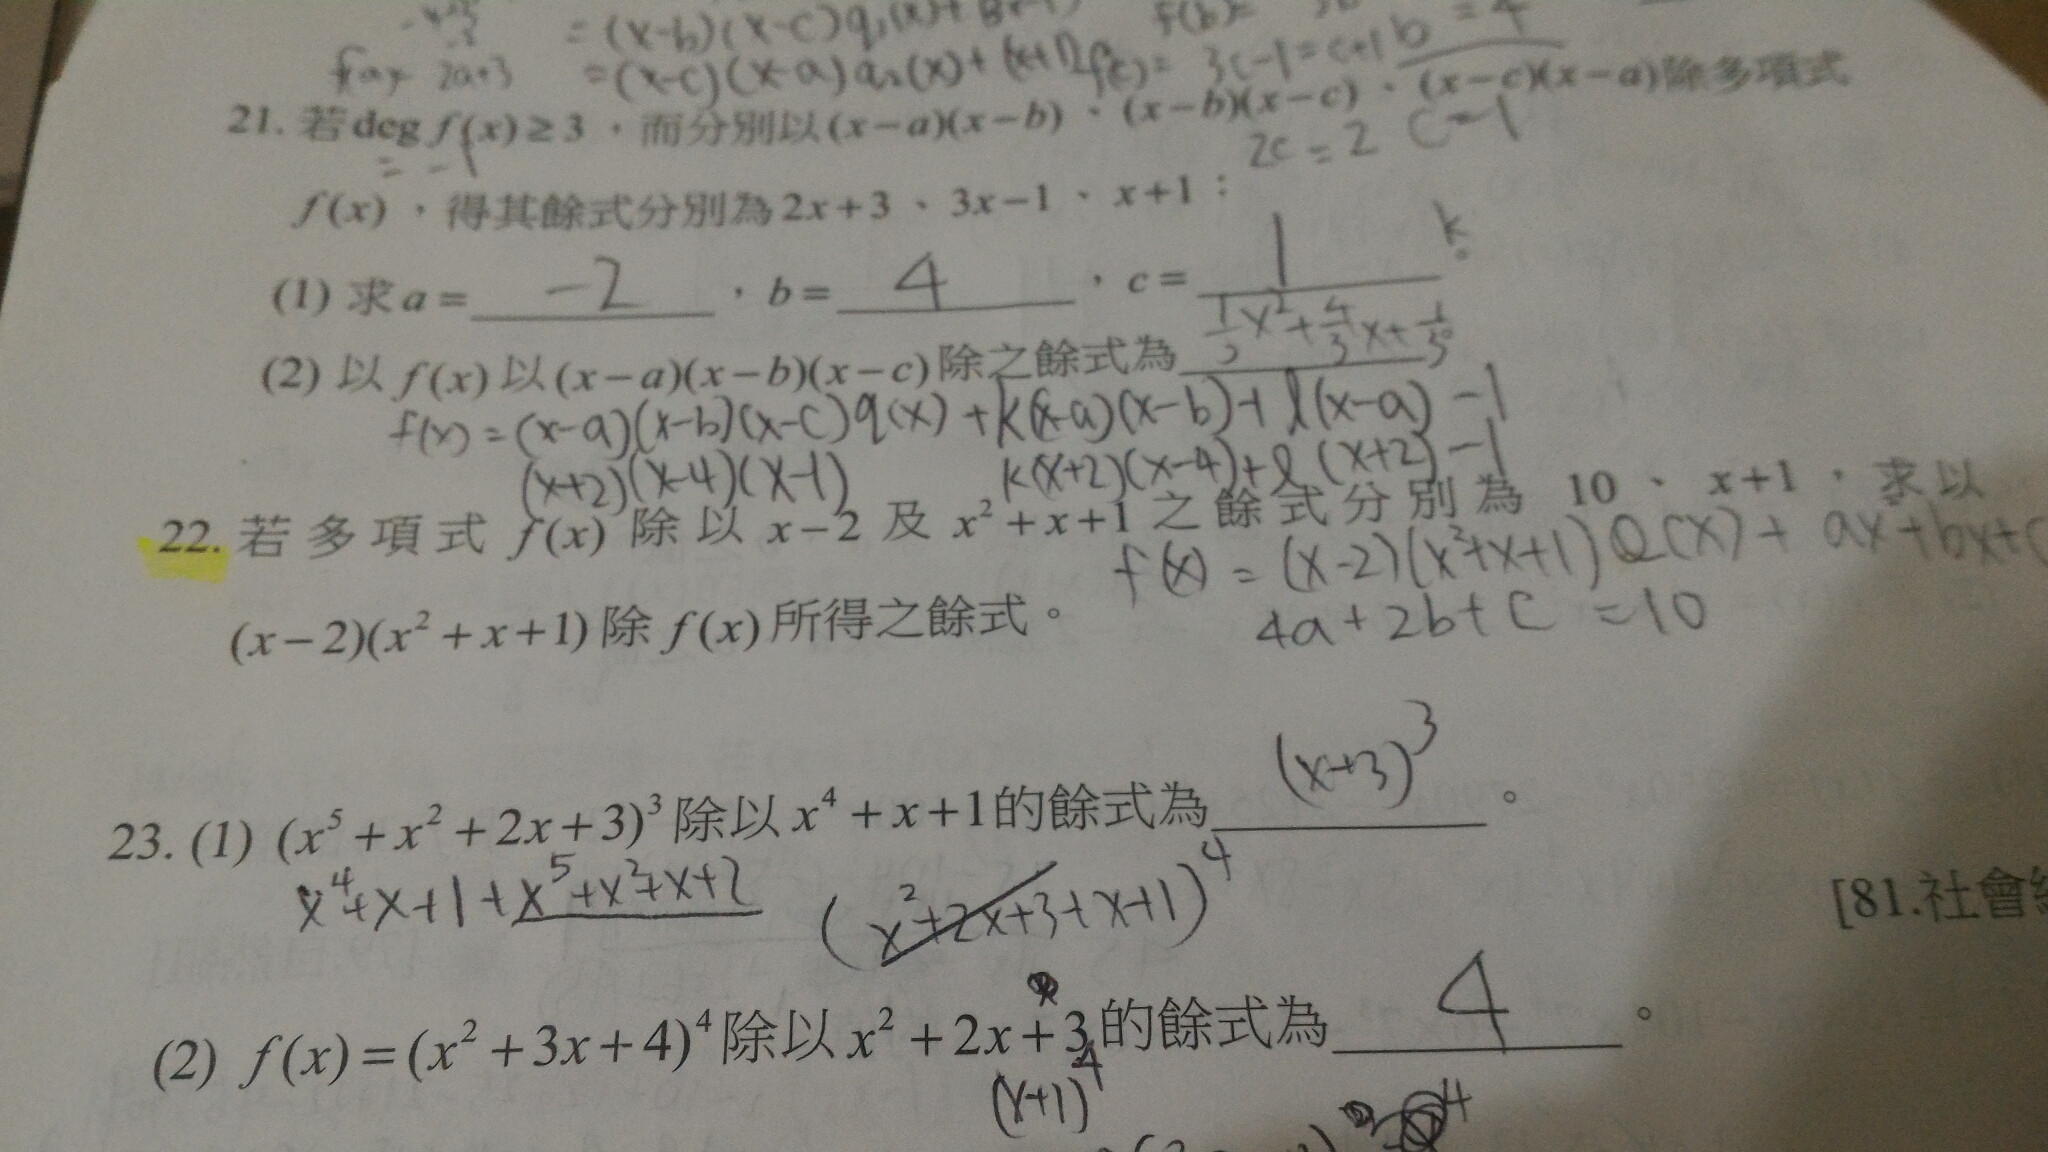 = (x-b)(x-c)q₁(x)+
f(b)=
f(a)= 2a+3 = (x-c)(x-a)q₂(x)+(x+1) f(c)= 3c-1=c+1 b=4
21. 若deg f(x)≥3，而分別以(x-a)(x-b)、(x-b)(x-c)、(x-c)(x-a)除多項式
= -1
2c=2 c=1
f(x)，得其餘式分別為2x+3、3x-1、x+1：
(1) 求a= -2 ，b= 4 ，c= 1
k
(2) 以f(x)以(x-a)(x-b)(x-c)除之餘式為 x²+4/3x+
f(x)=(x-a)(x-b)(x-c)q(x)+k(x-a)(x-b)+l(x-a)-1
(x+2)(x-4)(x-1) k(x+2)(x-4)+l(x+2)-1
22. 若多項式 f(x) 除以 x-2 及 x²+x+1 之餘式分別為 10、x+1，求以
f(x)=(x-2)(x²+x+1)Q(x)+ax+bx+c
(x-2)(x²+x+1)除f(x)所得之餘式。
4a+2b+c=10
23. (1) (x⁵+x²+2x+3)³除以x⁴+x+1的餘式為 (x+3)³ 。
x⁴+x+1+x⁵+x²+x+2 (x²+2x+3+x+1)⁴
[81.社會
(2) f(x)=(x²+3x+4)⁴除以x²+2x+3的餘式為 4 。
(x+1)⁴